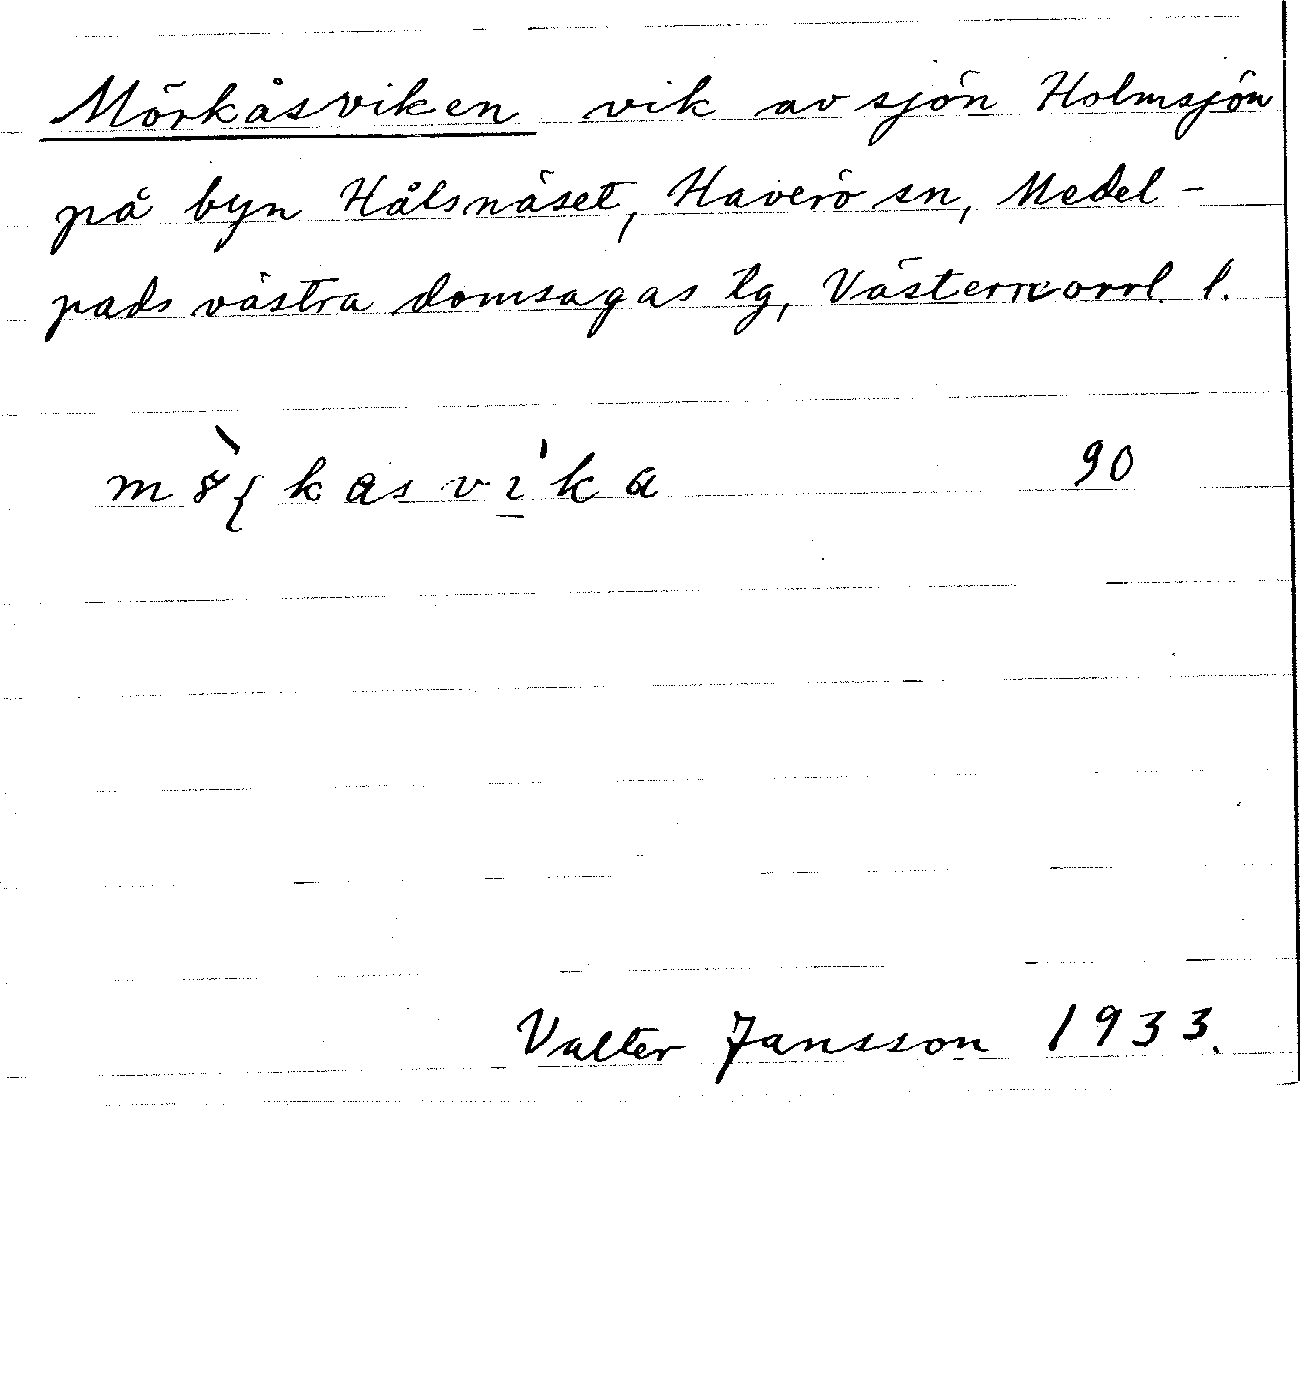 Mörkåsviken vik av sjön Holmsjön
på byn Hålsnäset, Haverö sn, Medel-
pads västra domsagas tg, Västernorrl. l.
90
Valter Jansson 1933.